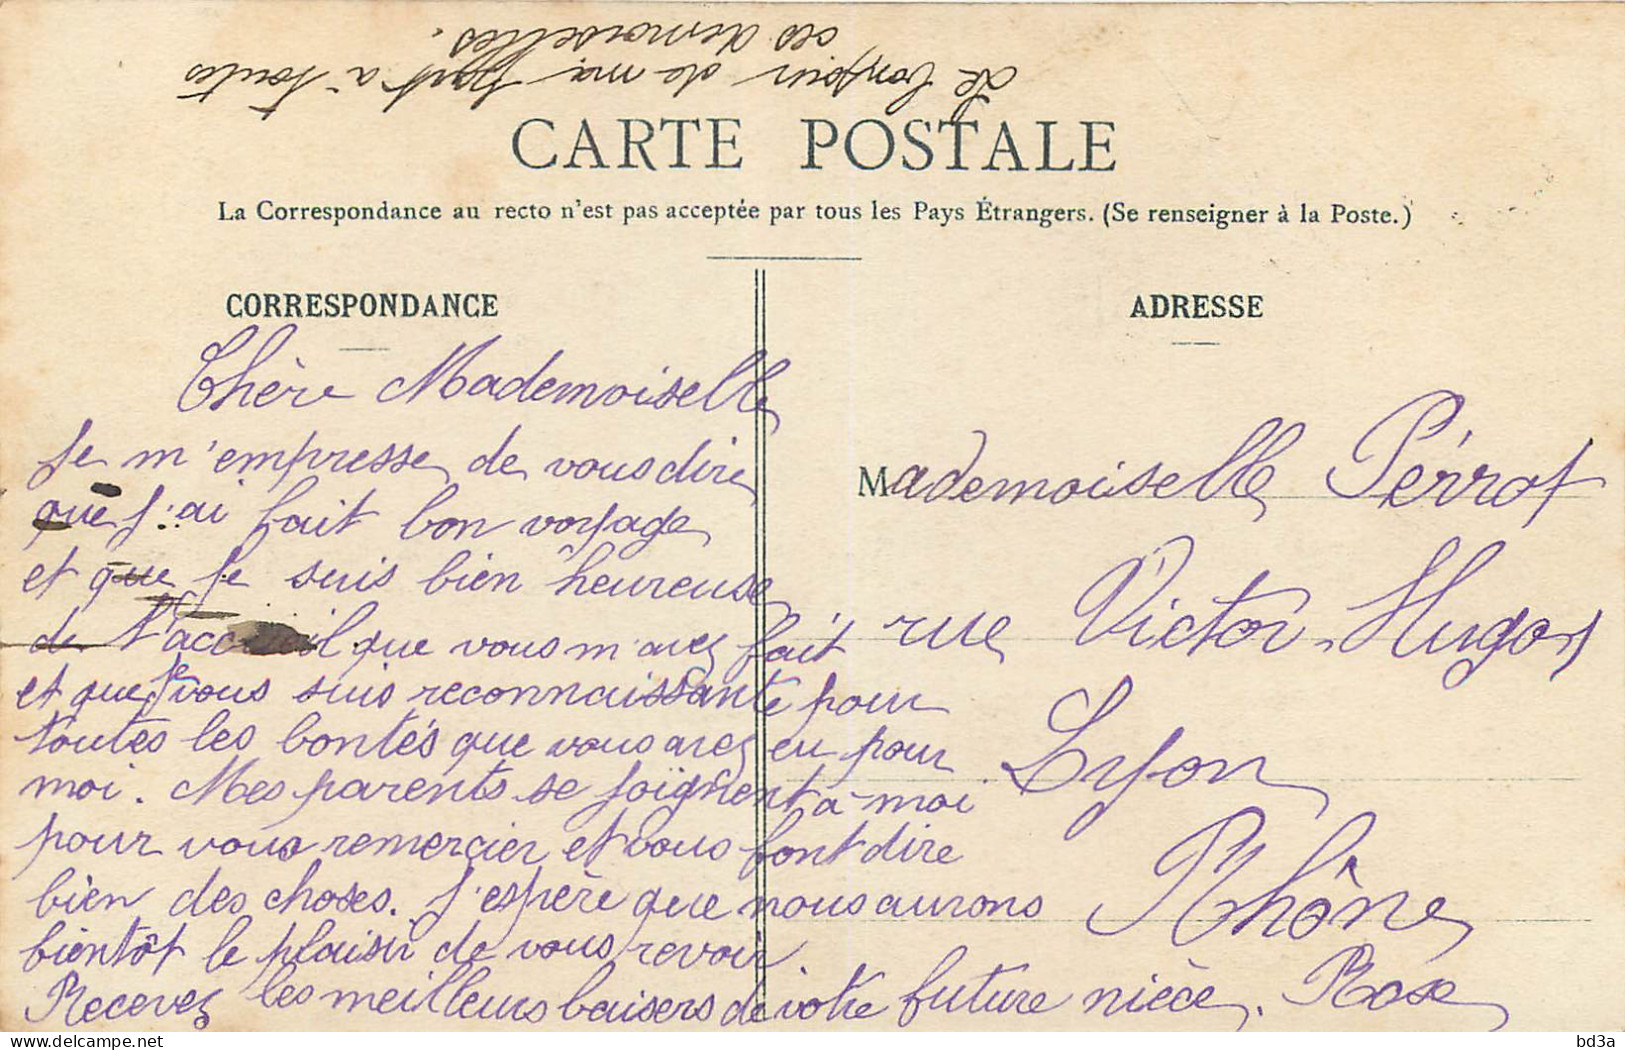 Le bonjour de ma part a toutes
ces demoiselles.
CARTE POSTALE
La Correspondance au recto n'est pas acceptée par tous les Pays Étrangers. (Se renseigner à la Poste.)
CORRESPONDANCE
Chère Mademoiselle
Je m'empresse de vous dire
que j'ai fait bon voyage
et que je suis bien heureuse
de l'accueil que vous m'avez fait
et que je vous suis reconnaissante pour
toutes les bontés que vous avez eu pour
moi. Mes parents se joignent à moi
pour vous remercier et vous font dire
bien des choses. J'espère que nous aurons
bientôt le plaisir de vous revoir.
Recevez les meilleurs baisers de votre future nièce. Rose
ADRESSE
Mademoiselle Pérrot
rue Victor-Hugo
Lyon
Rhône
bd3a